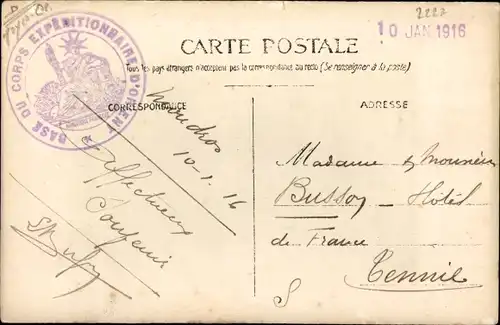 2227
10 JAN 1916
BASE DU CORPS EXPÉDITIONNAIRE D'ORIENT
CARTE POSTALE
Tous les pays étrangers n'acceptent pas la correspondance au recto (Se renseigner à la poste)
CORRESPONDANCE
ADRESSE
Moudros
10-1-16
Affectueux
Souvenir
Madame & Monsieur
Busson - Hôtel
de France
Tennie